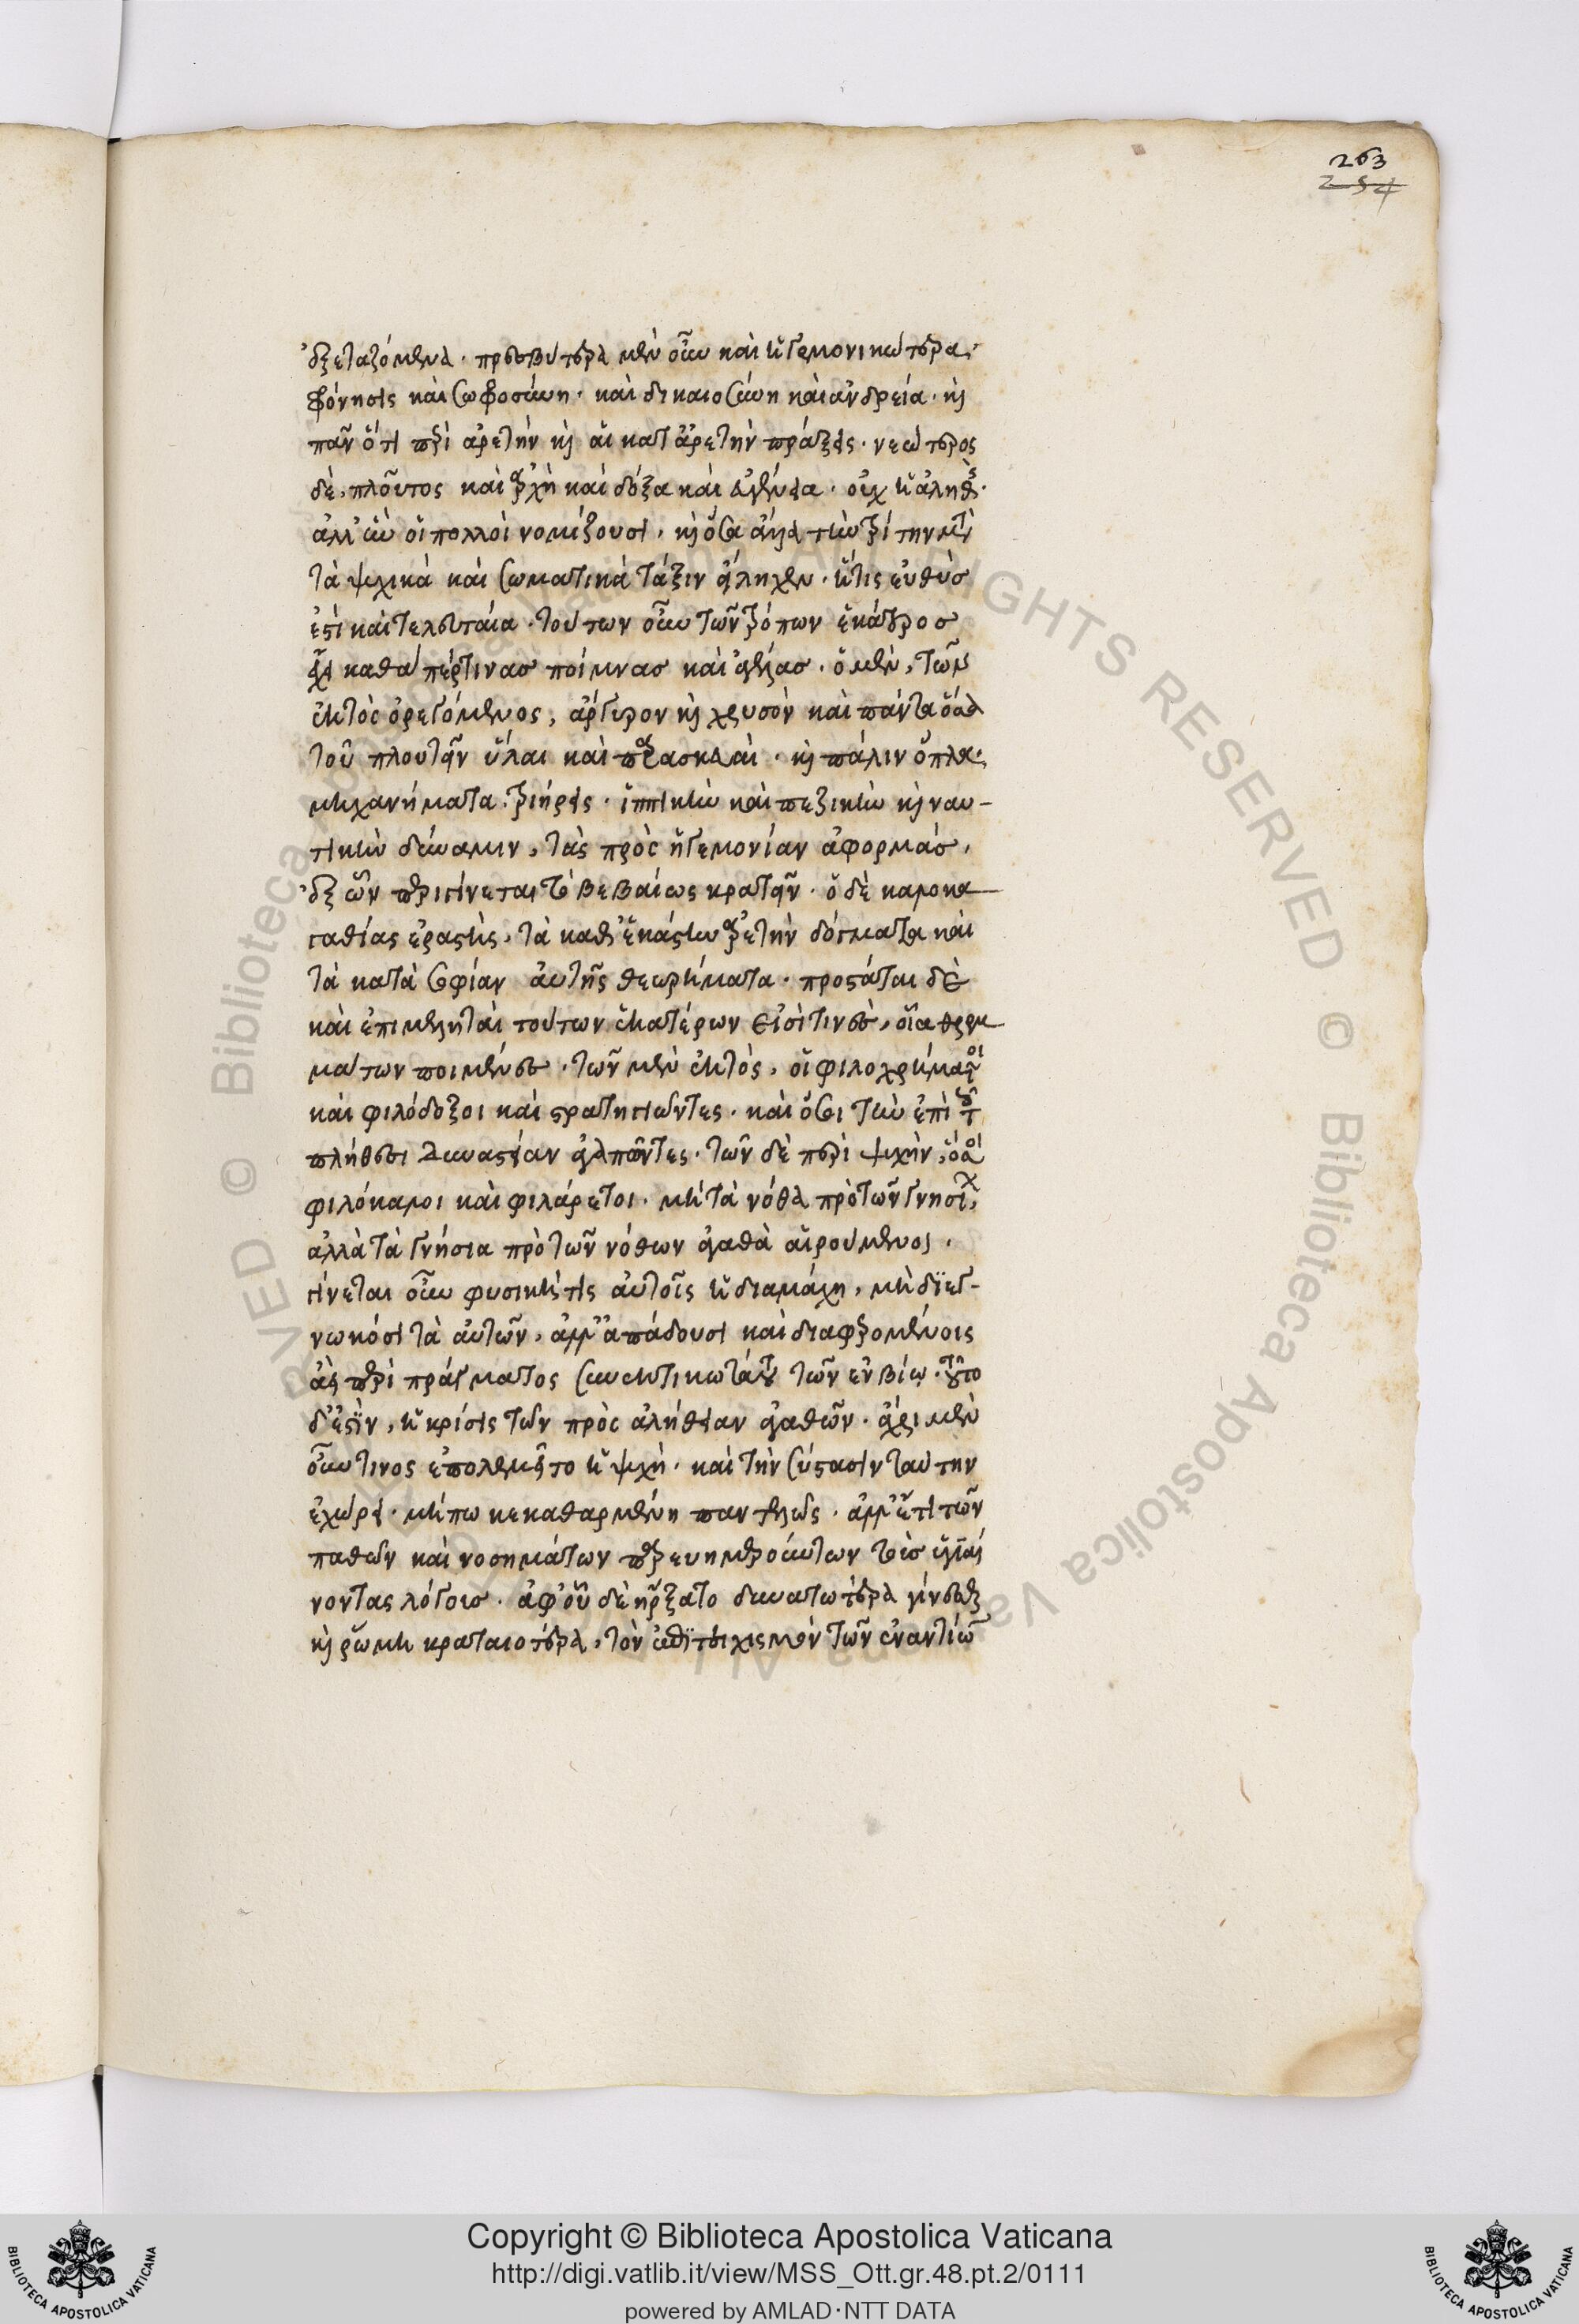 263
254
ἐξεταζόμενα. πρεσβύτερα μὲν οὖν καὶ ἡγεμονικώτερα,
φρόνησις καὶ σωφροσύνη. καὶ δικαιοσύνη καὶ ἀνδρεία. καὶ
πᾶν ὅτι περὶ ἀρετὴν καὶ αἱ κατ' ἀρετὴν πράξεις. νεώτερος
δὲ, πλοῦτος καὶ ἀρχὴ καὶ δόξα καὶ εὐγένεια. οὐχ ἡ ἀληθὴς.
ἀλλ' ἣν οἱ πολλοὶ νομίζουσι, καὶ ὅσα ἄλλα τὴν τρίτην μετὰ
τὰ ψυχικὰ καὶ σωματικὰ τάξιν εἴληχεν. ἥτις εὐθὺσ
ἐστὶ καὶ τελευταία. τούτων οὖν τῶν τρόπων ἑκάτεροσ
ἔχει καθάπέρ τινασ ποίμνασ καὶ ἀγέλασ. ὁ μὲν, τῶν
ἐκτὸς ὀρεγόμενος, ἄργυρον καὶ χρυσὸν καὶ πάντα ὅσα
τοῦ πλουτεῖν ὗλαι καὶ παρασκευαὶ. καὶ πάλιν ὅπλα,
μηχανήματα. τριήρεις. ἱππικὴν καὶ πεζικὴν καὶ ναυ-
τικὴν δύναμιν, τὰς πρὸς ἡγεμονίαν ἀφορμάσ,
ἐξ ὧν περιγίνεται τὸ βεβαίως κρατεῖν. ὁ δὲ καλοκα
γαθίας ἐραστὴς, τὰ καθ' ἑκάστην ἀρετὴν δόγματα καὶ
τὰ κατὰ σοφίαν αὐτῆς θεωρήματα. προστάται δὲ
καὶ ἐπιμεληταὶ τούτων ἑκατέρων εἰσὶ τινὲς, οἷα θρεμ
μάτων ποιμένες. τῶν μὲν ἐκτὸς, οἱ φιλοχρήματοι
καὶ φιλόδοξοι καὶ στρατηγιῶντες. καὶ ὅσοι τὴν ἐπὶ τοῖς
πλήθεσι δυναστείαν ἀγαπῶντες. τῶν δὲ περὶ ψυχὴν, ὅσοι
φιλόκαλοι καὶ φιλάρετοι. μὴ τὰ νόθα πρὸ τῶν γνησίων,
ἀλλὰ τὰ γνήσια πρὸ τῶν νόθων ἀγαθὰ αἱρούμενοι.
γίνεται οὖν φυσική τις αὐτοῖς ἡ διαμάχη, μηδὲν ἐγ-
νωκόσι τὰ αὐτῶν, ἀλλ' ἀπάδουσι καὶ διαφερομένοις
ἀεὶ περὶ πράγματος συνεκτικωτάτου τῶν ἐν βίῳ. τοῦτο
δ' ἐστὶν, ἡ κρίσις τῶν πρὸς ἀλήθειαν ἀγαθῶν. ἄχρι μὲν
οὖν τινος ἐπολεμεῖτο ἡ ψυχὴ. καὶ τὴν σύστασιν ταύτην
ἐχώρει. μήπω κεκαθαρμένη παντελῶς. ἀλλ' ἔτι τῶν
παθῶν καὶ νοσημάτων παρευημερούντων τοὺσ ὑγιαί
νοντας λόγουσ. ἀφ' οὗ δὲ ἤρξατο δυνατωτέρα γίνεσθαι
καὶ ῥώμῃ κραταιοτέρα, τὸν ἐπιτειχισμὸν τῶν ἐναντίων
Copyright © Biblioteca Apostolica Vaticana
http://digi.vatlib.it/view/MSS_Ott.gr.48.pt.2/0111
powered by AMLAD·NTT DATA